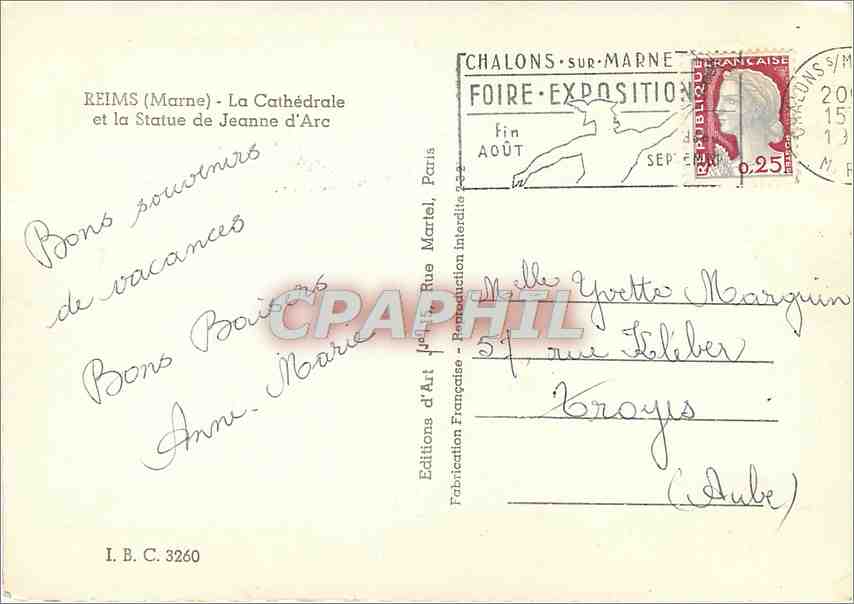 REIMS (Marne) - La Cathédrale
et la Statue de Jeanne d'Arc
Bons souvenirs
de vacances
Bons Baisers
Anne-Marie
I. B. C. 3260
Editions d'Art 15, Rue Martel, Paris
Fabrication Française - Reproduction interdite
CHALONS·SUR·MARNE
FOIRE·EXPOSITION
Fin
AOÛT
SEPTEMBRE
REPUBLIQUE FRANÇAISE
0,25
CHALONS S/M
Melle Yvette Marguin
57, rue Kléber
Troyes
(Aube)
CPAPHIL